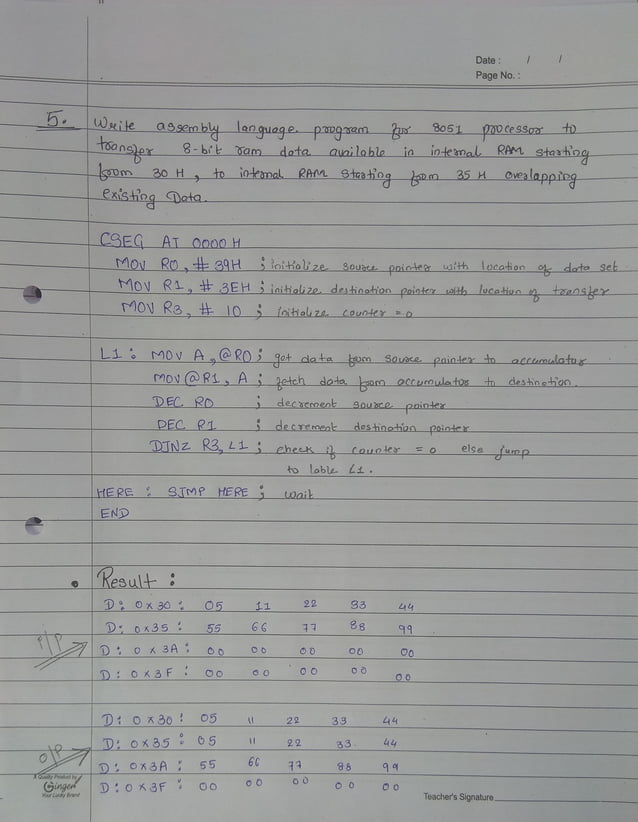 Date : / /
Page No. :
5. Write assembly language program for 8051 processor to
transfer 8-bit ram data available in internal RAM starting
from 30 H , to internal RAM starting from 35 H overlapping
existing Data.
CSEG AT 0000 H
MOV R0 , # 39H ; initialize source pointer with location of data set
MOV R1 , # 3EH ; initialize destination pointer with location of transfer
MOV R3 , # 10 ; initialize counter = 0
L1 : MOV A , @R0 ; get data from source pointer to accumulator
MOV @R1 , A ; fetch data from accumulator to destination.
DEC R0 ; decrement source pointer
DEC R1 ; decrement destination pointer
DJNZ R3, L1 ; check if counter = 0 else jump
to lable L1 .
HERE : SJMP HERE ; wait
END
• Result :
D: 0x30 : 05 11 22 33 44
D: 0x35 : 55 66 77 88 99
I/P D: 0 x 3A : 00 00 00 00 00
D : 0 x 3F : 00 00 00 00 00
D: 0 x 30 : 05 11 22 33 44
D: 0x35 : 05 11 22 33 44
O/P D: 0x3A : 55 66 77 88 99
D: 0 x 3F : 00 00 00 00 00
A Quality Product by
Ginger
Your Lucky Brand
Teacher's Signature